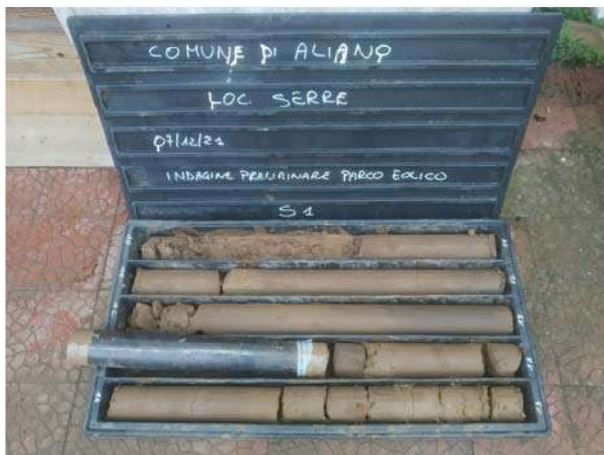 COMUNE DI ALIANO
LOC. SERRE
07/12/21
INDAGINE PRELIMINARE PARCO EOLICO
S1